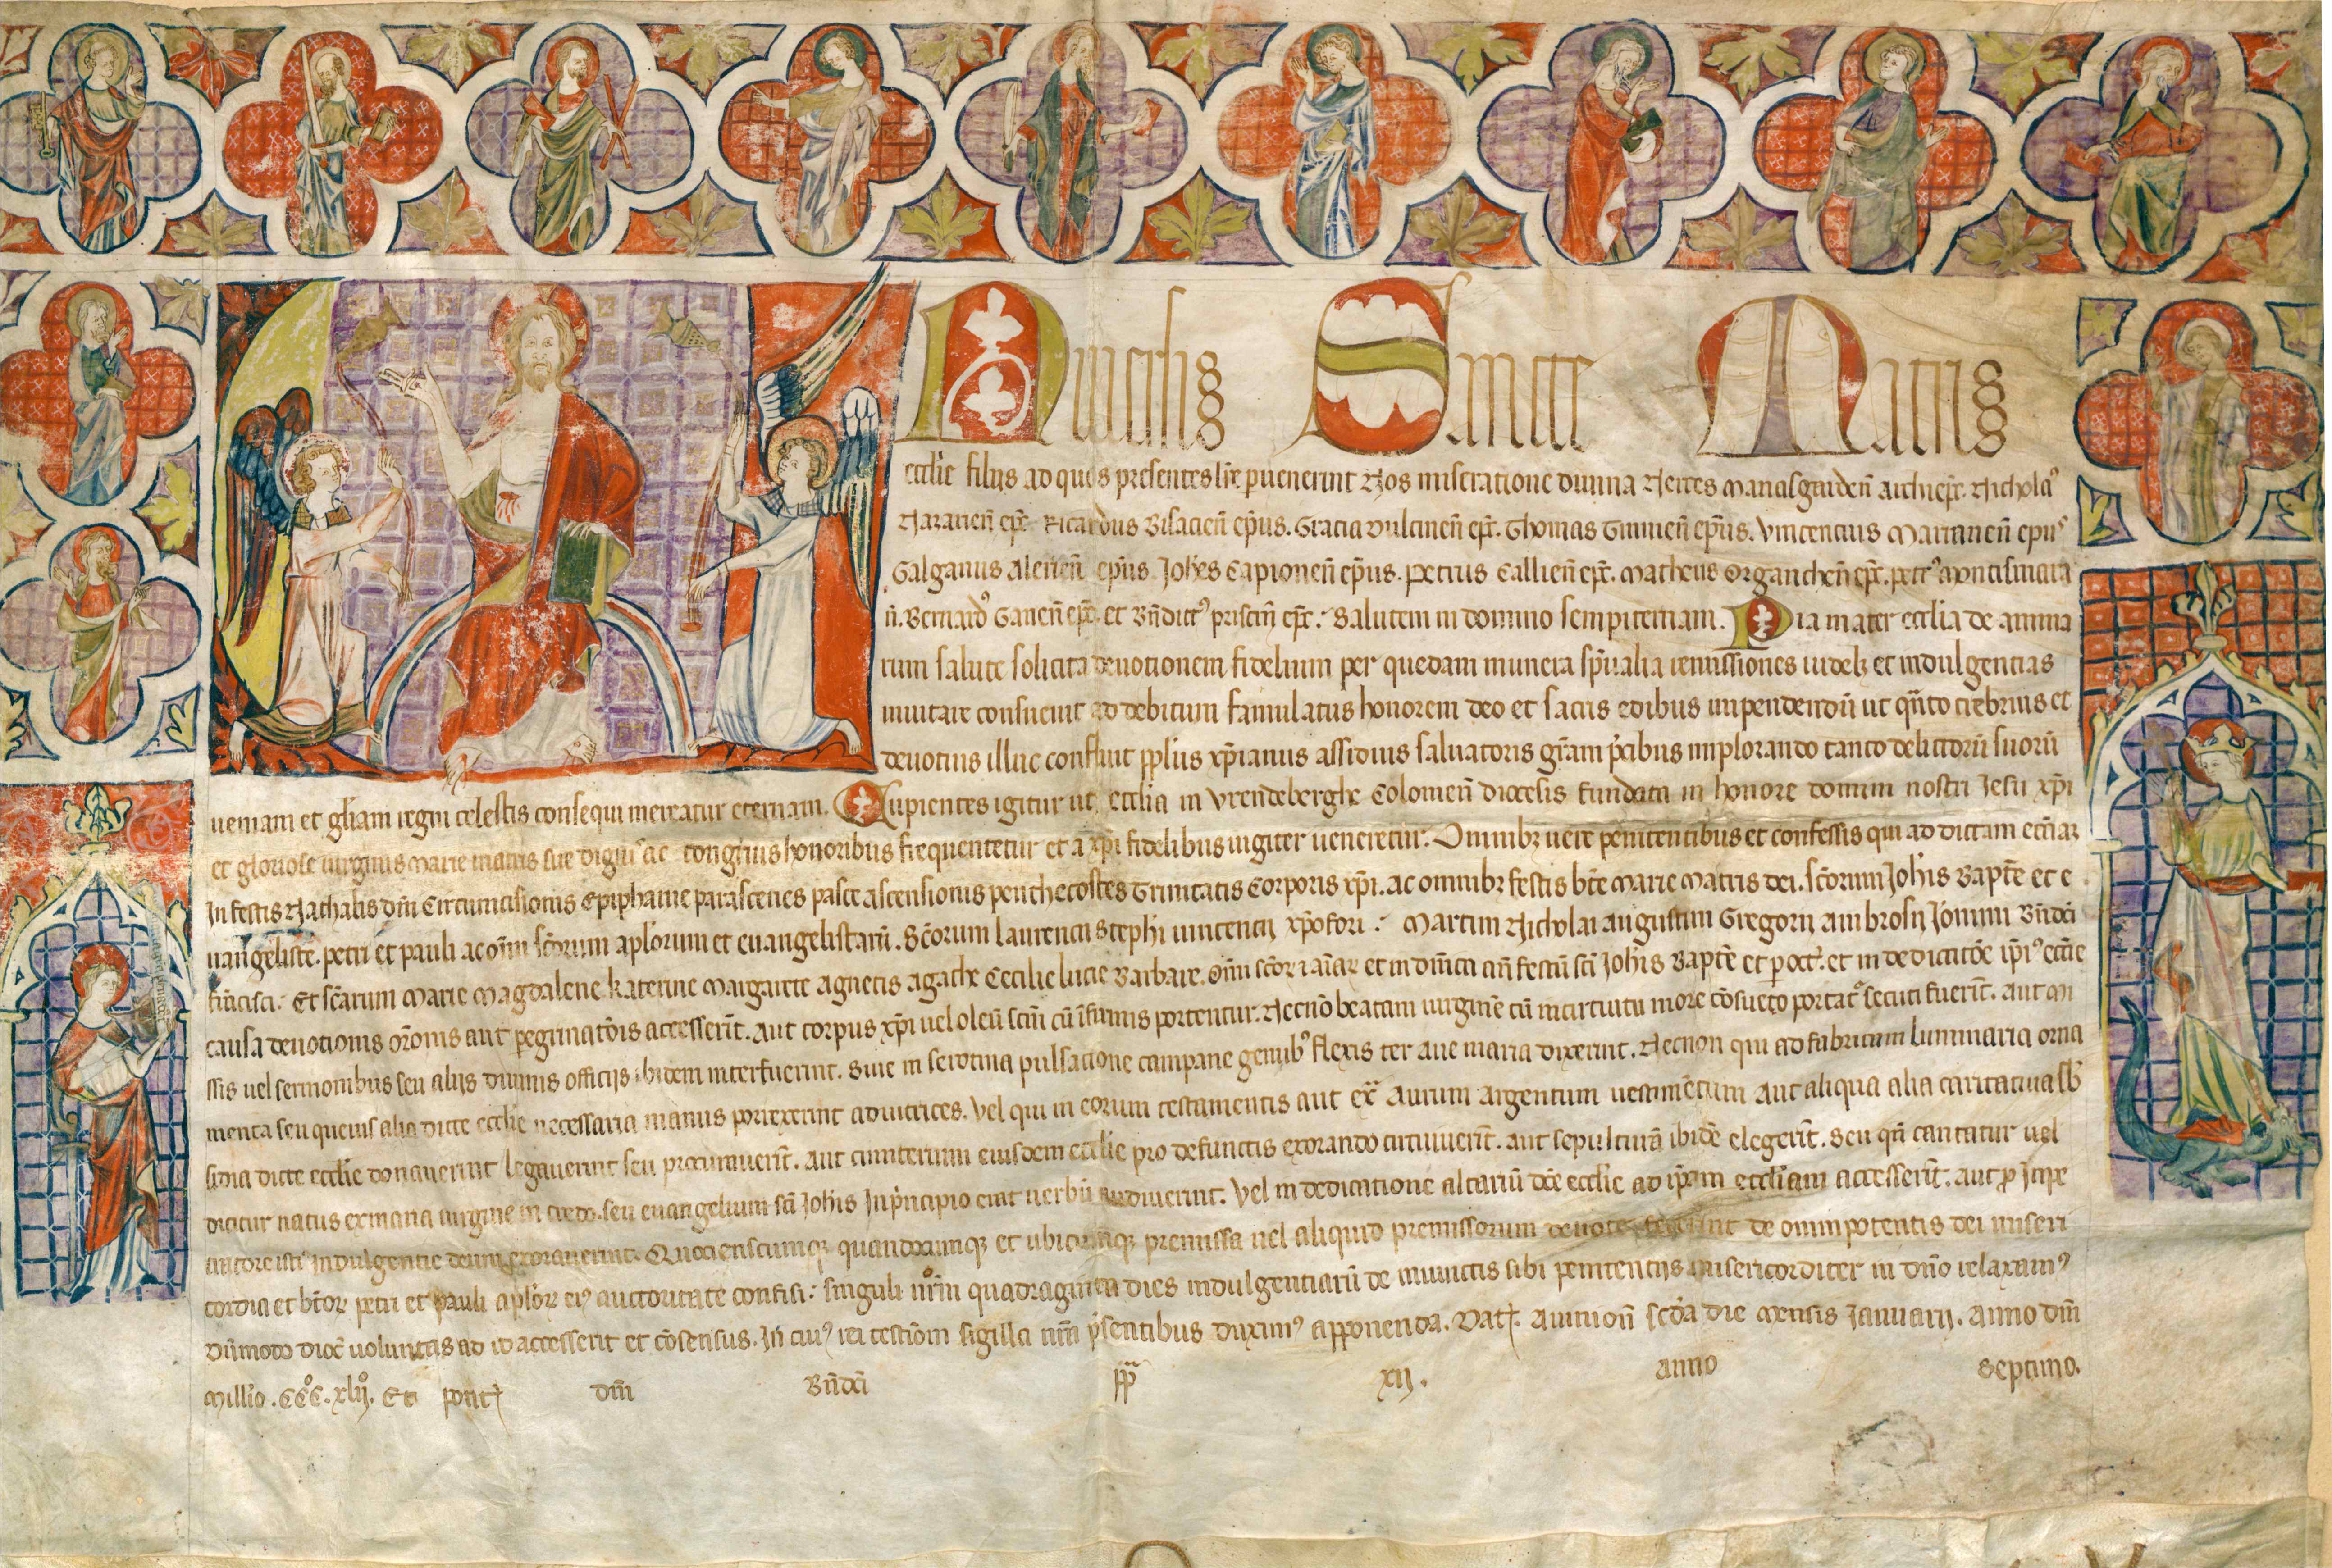 Universis Sancte Matris
ecclie filiis ad quos presentes lre pervenerint Nos miseratione divina Nerces Manasgarden archiepc. Nichola9
Nazarien epc Ricardus Bisacien epus. Gracia Dulcinen epc. Thomas Tinnien epus. Vincencius Marianen epus
Galganus Alerien epus Johes Capionen epus. Petrus Callien epc. Matheus Organthen epc. petr9 Montismara
n. Bernard9 Ganen epc. et Bndict9 priscin epc. Salutem in domino sempiternam. Pia mater ecclia de anima
rum salute solicita devotionem fidelium per quedam munera spualia remissiones videlz et indulgencias
invitare consuevit ad debitum famulatus honorem deo et sacris edibus impendendu ut qnto crebrius et
devotius illuc confluit pplus xpianus assiduis salvatoris gram pcibus implorando tanto delictoru suoru
veniam et gliam regni celestis consequi mereatur eternam. Cupientes igitur ut ecclia in Vrendeberghe Colonien diocesis fundata in honore domini nostri Jesu xpi
et gloriose virginis Marie matris sue dignis ac congruis honoribus frequentetur et a xpi fidelibus iugiter veneretur. Omnibz vere penitentibus et confessis qui ad dictam eccliaz
In festis Nathalis dni Circumcisionis Epiphanie parasceves pasce ascensionis penthecostes Trinitatis Corporis xpi. ac omnibz festis bte Marie Matris dei. scorum Johis Bapte et e
vangeliste. petri et pauli ac oim scorum aplorum et evangelistaru. Scorum Laurencii Stephi vincencii xpofori. Martini Nicholai augustini Gregorii ambrosii Ieronimi Bndci
fracisci. Et scarum Marie Magdalene katerine Margarete agnetis agathe Cecilie lucie Barbare. oim scor et aiar et in dnica an festu sci Johis Bapte et p oct. et in dedicatoe ipi9 ecclie
causa devotionis oronis aut pegrinatois accesserint. aut corpus xpi vel oleu scm cu infirmis portentur. Necno beatam virgine cu in circuitu more cosueto portat secuti fuerint. aut mi
ssis vel sermonibus seu aliis divinis officiis ibidem interfuerint. sive in serotina pulsacione campane genib9 flexis ter ave maria dixerint. Necnon qui ad fabricam luminaria orna
menta seu quevis alia dicte ecclie necessaria manus porrexerint adiutrices. vel qui in eorum testamentis aut ex aurum argentum vestimentum aut aliqua alia caritativa sb
sidia dicte ecclie donaverint legaverint seu procuraverint. aut cimiterium eiusdem ecclie pro defunctis exorando circuiverint. aut sepultura ibide elegerint. Seu qn cantatur vel
dicitur natus ex maria virgine in credo. seu evangelium sci Johis In principio erat verbu audiverint. vel in dedicatione altariu dce ecclie ad ipam eccliam accesserint. aut p Impe
tratore isti9 Indulgentie deum exoraverint. Quocienscumqz quandocumqz et ubicumqz premissa vel aliquid premissorum devote fecerint de omnipotentis dei miseri
cordia et btor petri et pauli aplor ei9 auctoritate confisi. singuli nrm quadraginta dies indulgentiaru de iniunctis sibi penitentiis misericorditer in dno relaxam9
Dumodo dioc voluntas ad id accesserit et cosensus. In cui9 rei testiom sigilla nra psentibus duxim9 apponenda. Dat. Avinion scda die mensis Januarii. anno dni
Millio. CCC. xlii. Et pont dni Bndci pp xii. anno septimo.